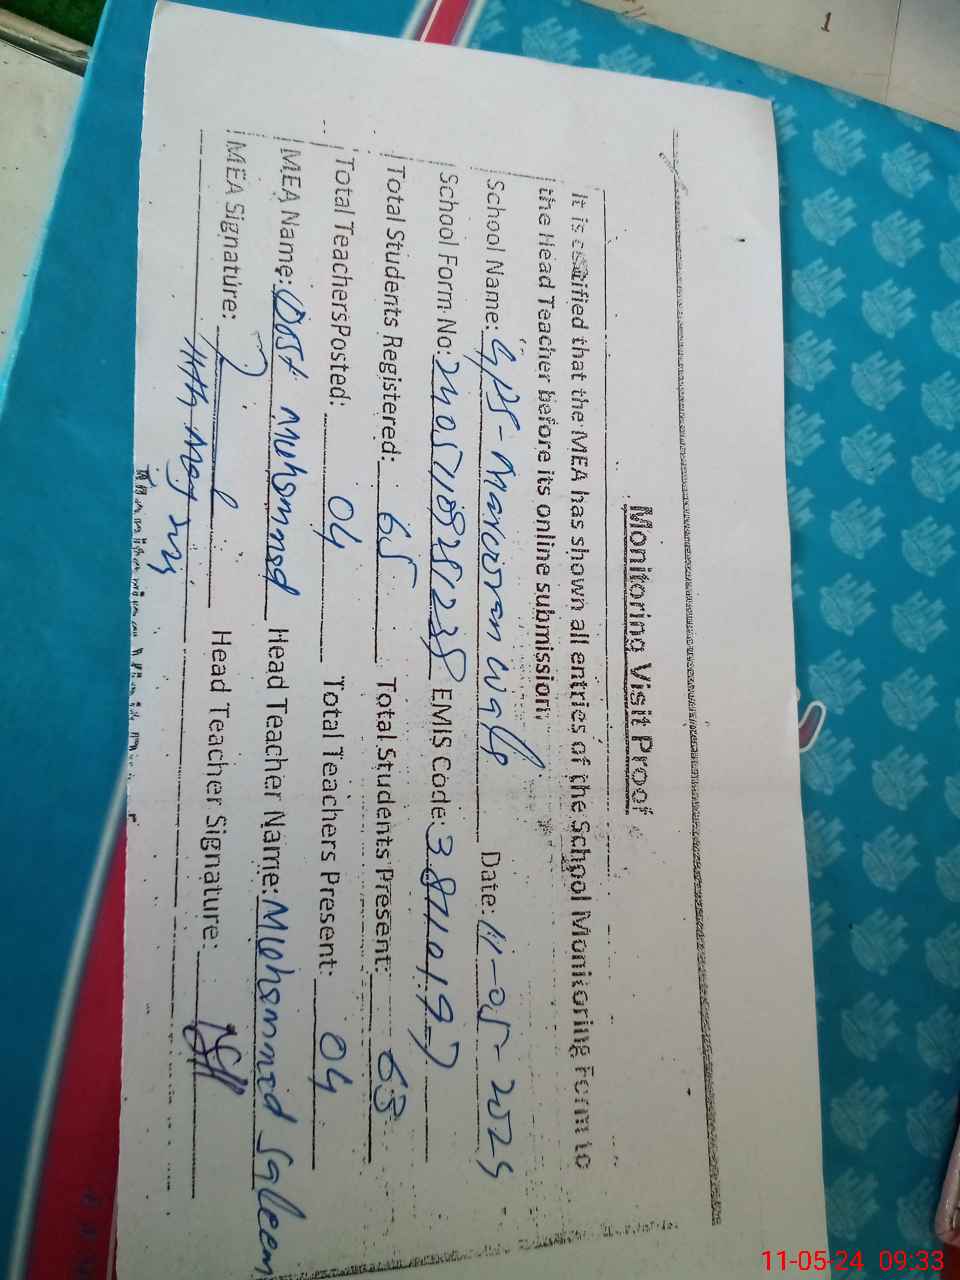 Monitoring Visit Proof
It is certified that the MEA has shown all entries of the School Monitoring Form to
the Head Teacher before its online submission.
School Name: GPS-Marooran Wala Date: 11-05-2024
School Form No: EMIS Code: 38110197
Total Students Registered: 65 Total Students Present: 63
Total TeachersPosted: 04 Total Teachers Present: 04
MEA Name: Dost Muhammad Head Teacher Name: Muhammad Saleem
MEA Signature: Head Teacher Signature:
11th May
1
11-05-24 09:33